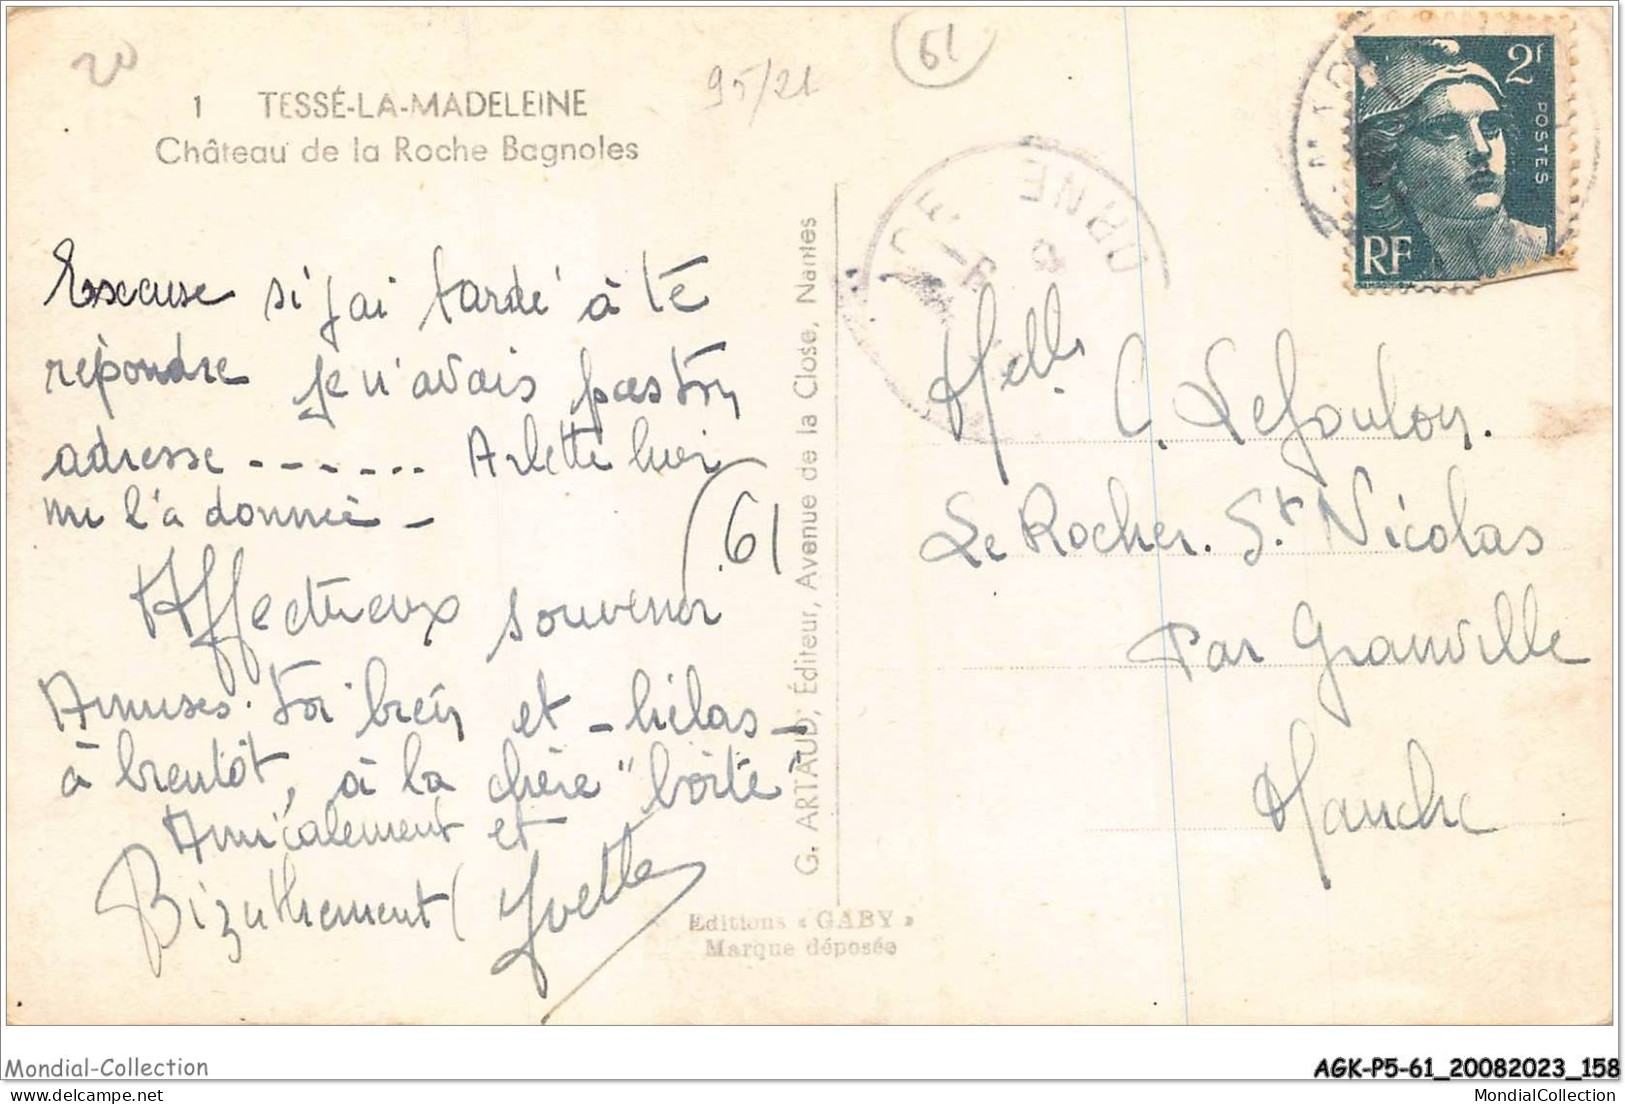 20
61
95/21
1 TESSÉ-LA-MADELEINE
Château de la Roche Bagnoles
2F
POSTES
RF
ORNE
Excuse si j'ai tardé à te
répondre je n'avais pas ton
adresse ------ Arlette hier
me l'a donnée -
Affectueux souvenir
Amuses-toi bien et - hélas -
à bientôt, à la chère "boîte"
Amicalement et
Bizuthement (
Yvette
61
G. ARTAUD, Éditeur, Avenue de la Close, Nantes
Editions « GABY »
Marque déposée
Melle C. Lefoulon.
Le Rocher. St Nicolas
Par Granville
Manche
Mondial-Collection
AGK-P5-61_20082023_158
MondialCollection
www.delcampe.net
MondialCollection